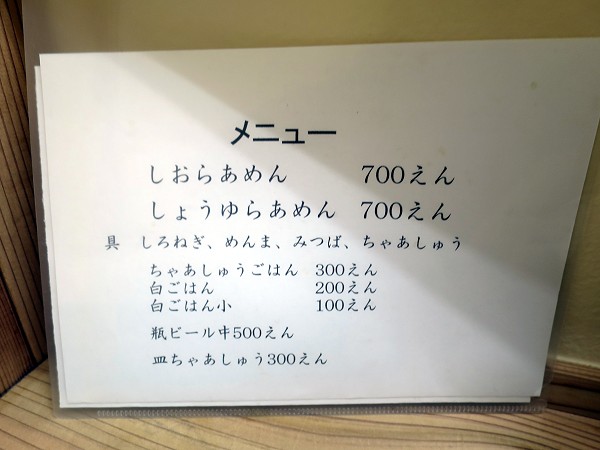 メニュー
しおらあめん 700えん
しょうゆらあめん 700えん
具 しろねぎ、めんま、みつば、ちゃあしゅう
ちゃあしゅうごはん 300えん
白ごはん 200えん
白ごはん小 100えん
瓶ビール中500えん
皿ちゃあしゅう300えん